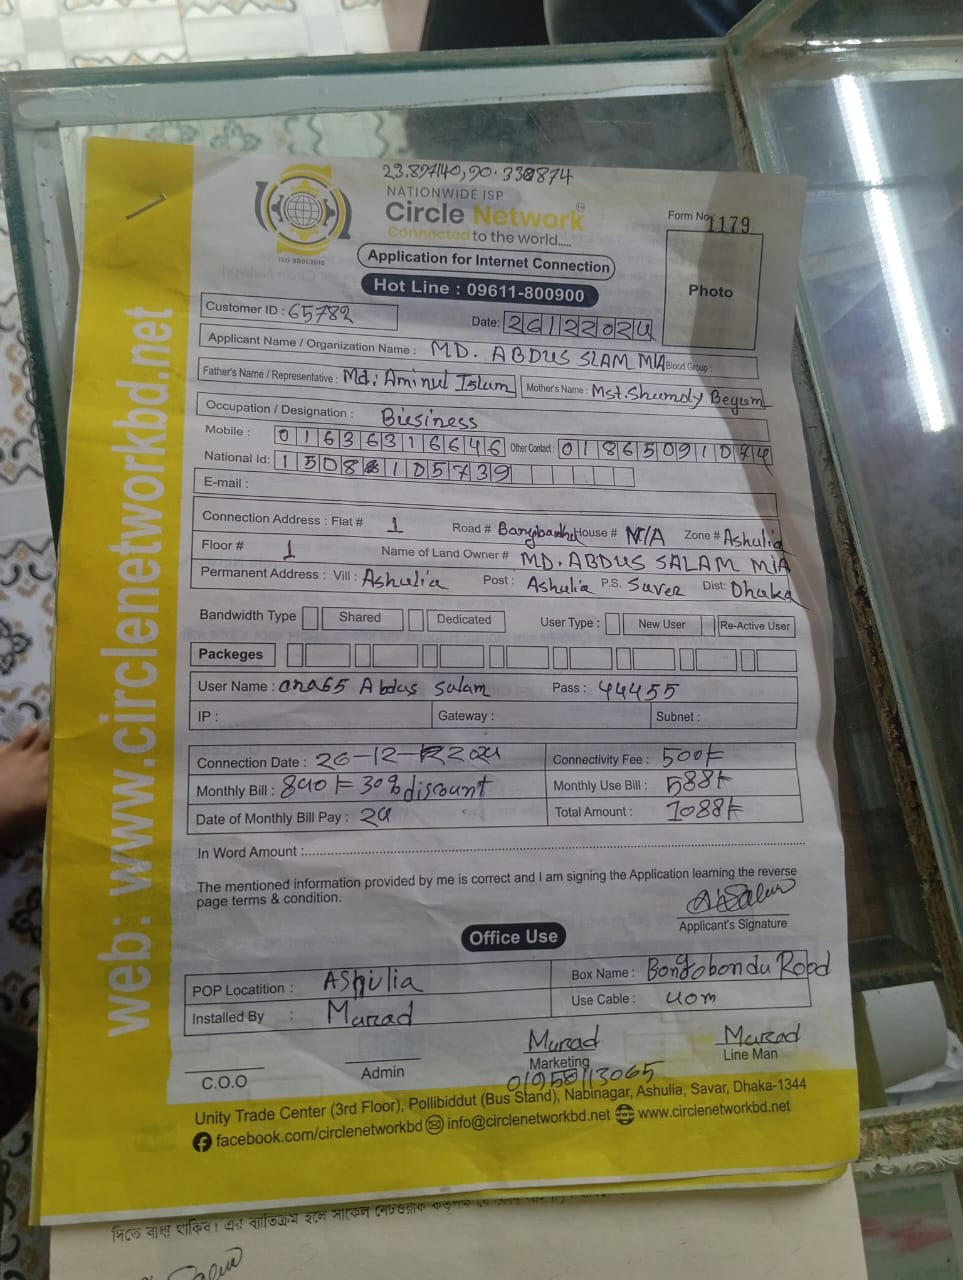 NATIONWIDE ISP
Circle Network
Connected to the world.....
ISO 9001:2015
Form No. 1179
Application for Internet Connection
Photo
Hot Line : 09611-800900
Customer ID : 65782
Date: 26122024
Applicant Name / Organization Name : MD. ABDUS SLAM MIA Blood Group :
Father's Name / Representative : Md. Aminul Islam Mother's Name : Mst. Shumdy Begum
Occupation / Designation : Biesiness
Mobile : 01636316646 Other Contact : 01865091074
National Id: 1508 105739
E-mail :
Connection Address : Flat # 1 Road # House # N/A Zone # Ashulia
Floor # 1 Name of Land Owner # MD. ABDUS SALAM MIA
Permanent Address : Vill : Ashulia Post : Ashulia P.S. Saver Dist: Dhaka
Bandwidth Type Shared Dedicated User Type : New User Re-Active User
Packeges
User Name : cna65 Abdus Salam Pass : 44455
IP : Gateway : Subnet :
Connection Date : 26-12-2024 Connectivity Fee : 500/=
Monthly Bill : 840/= 30% discount Monthly Use Bill : 588/=
Date of Monthly Bill Pay : 24 Total Amount : 1088/=
In Word Amount :
The mentioned information provided by me is correct and I am signing the Application learning the reverse
page terms & condition.
Applicant's Signature
Office Use
POP Locatition : Ashulia Box Name : Bongobondu Road
Installed By : Murad Use Cable : 40m
Murad Murad
C.O.O Admin Marketing Line Man
01958113065
Unity Trade Center (3rd Floor), Pollibiddut (Bus Stand), Nabinagar, Ashulia, Savar, Dhaka-1344
facebook.com/circlenetworkbd info@circlenetworkbd.net www.circlenetworkbd.net
web: www.circlenetworkbd.net